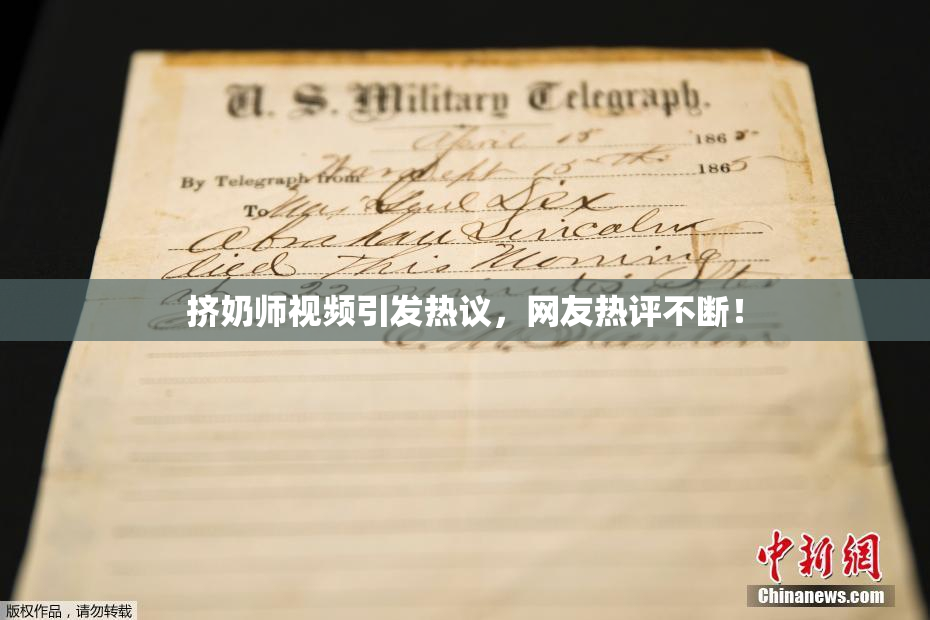 U. S. Military Telegraph.
April 15 1865
By Telegraph from War Dept 15th 1865
To Maj Genl Dix
Abraham Lincoln
died this Morning
at 22 minutes after
挤奶师视频引发热议，网友热评不断！
E. M. Stanton
中新网
Chinanews.com
版权作品，请勿转载